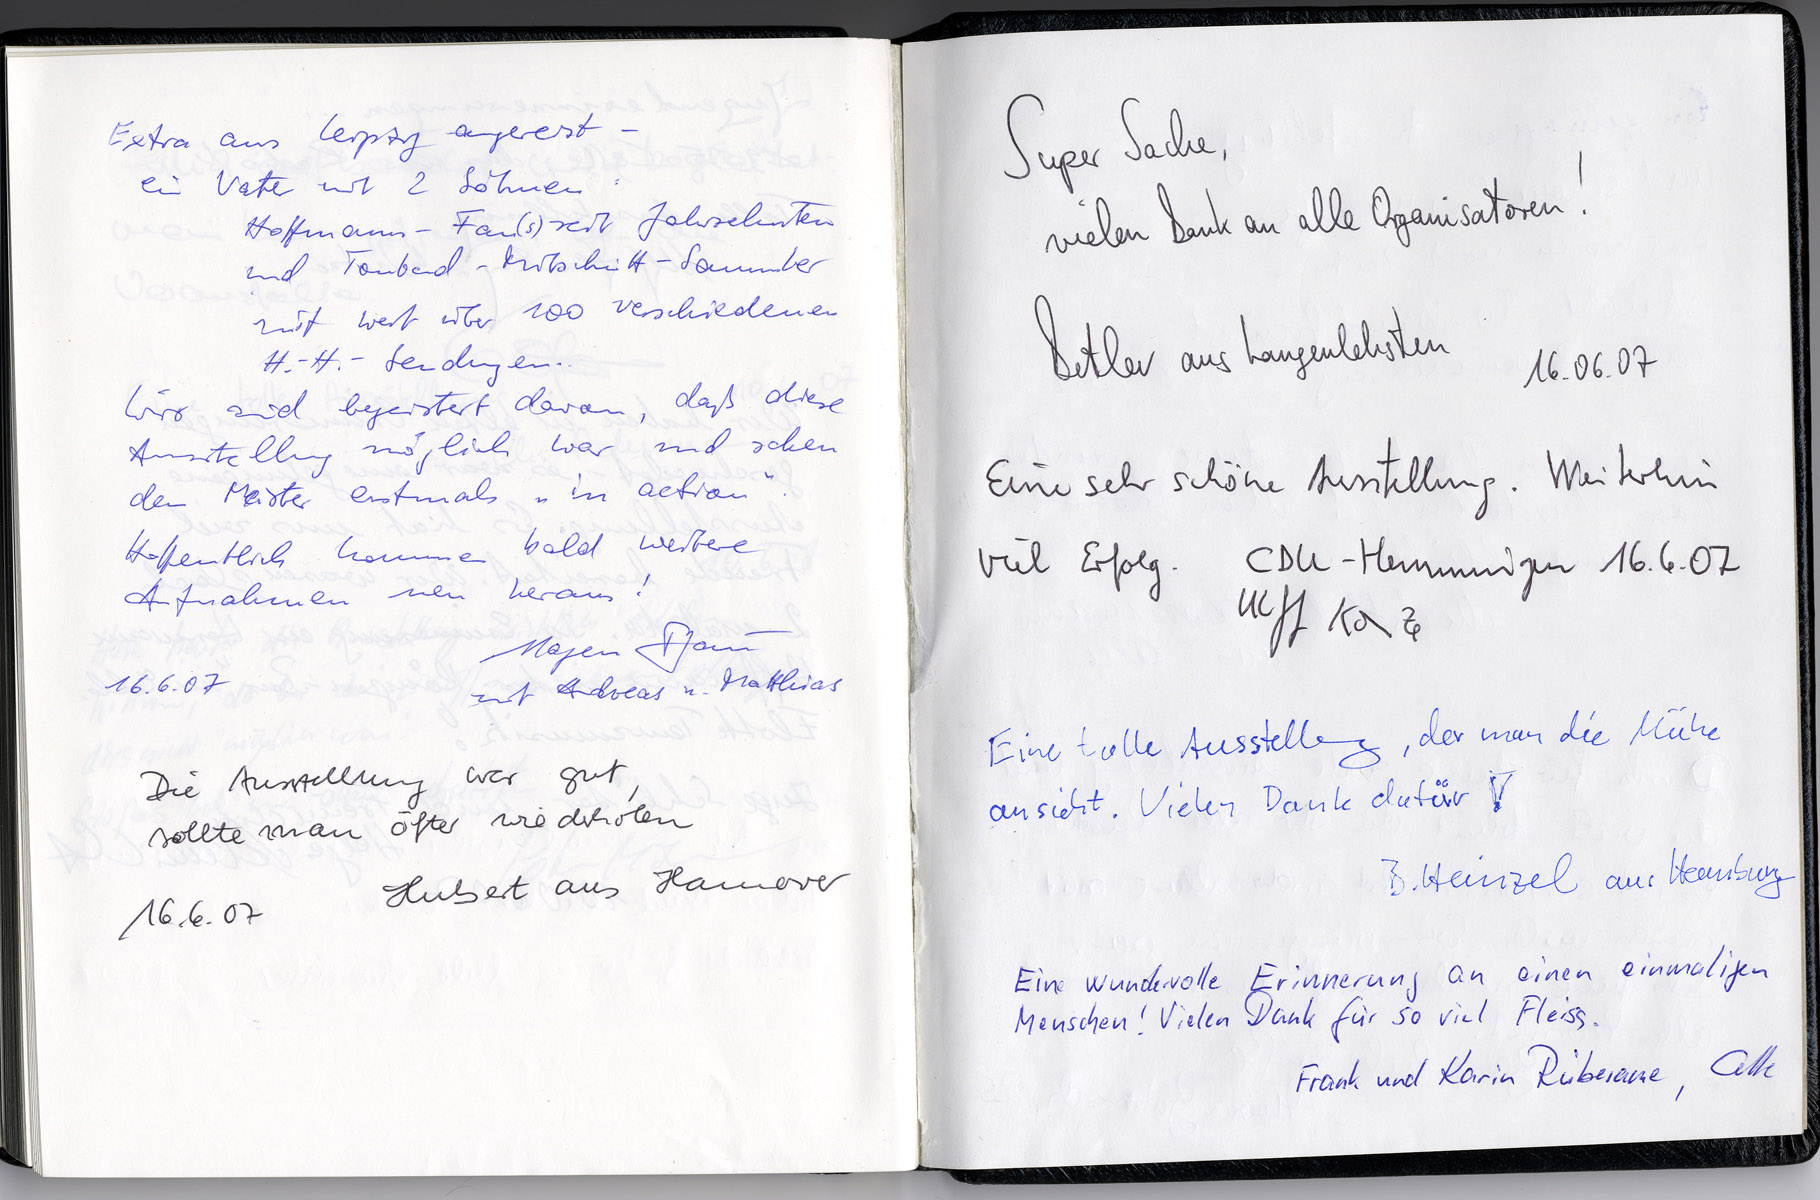 Extra aus Leipzig angereist -
ein Vater mit 2 Söhnen:
Hoffmann-Fan(s) seit Jahrzehnten
und Tonband-Mitschnitt-Sammler
mit weit über 100 verschiedenen
H.-H.-Sendungen.
Wir sind begeistert davon, daß diese
Ausstellung möglich war und sehen
den Meister erstmals „in action".
Hoffentlich kommen bald weitere
Aufnahmen neu heraus!
mit Andreas u. Matthias
16.6.07
Die Ausstellung war gut,
sollte man öfter wiederholen
Hubert aus Hannover
16.6.07
Super Sache,
vielen Dank an alle Organisatoren!
Detlev aus Langenlehsten
16.06.07
Eine sehr schöne Ausstellung. Weiterhin
viel Erfolg. CDU-Hemmingen 16.6.07
Eine tolle Ausstellung, der man die Mühe
ansieht. Vielen Dank dafür!
B. Heinzel aus Hamburg
Eine wundervolle Erinnerung an einen einmaligen
Menschen! Vielen Dank für so viel Fleiss.
Frank und Karin, Celle